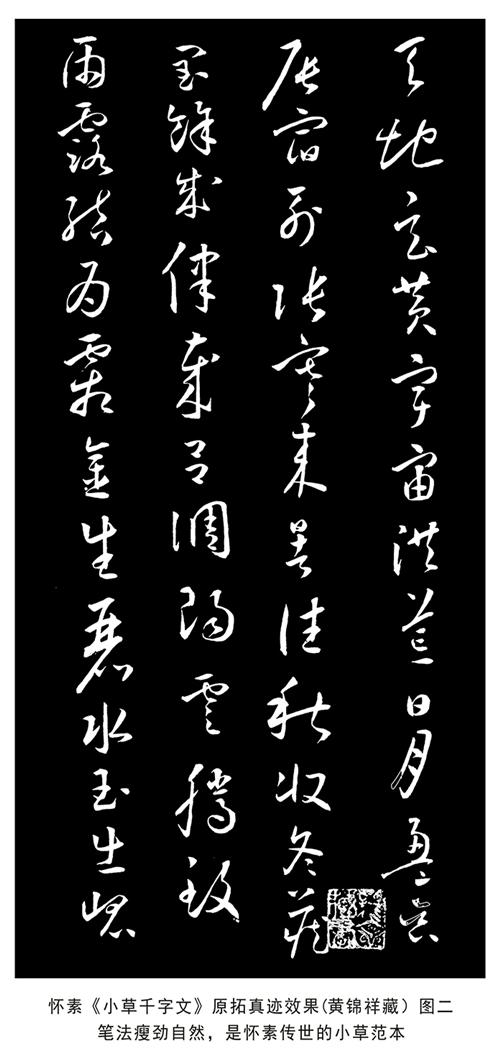 天地玄黃宇宙洪荒日月盈昃
辰宿列張寒來暑往秋收冬藏
閏餘成律歲呂調陽雲騰致
雨露結為霜金生麗水玉出崐
怀素《小草千字文》原拓真迹效果(黄锦祥藏）图二
笔法瘦劲自然，是怀素传世的小草范本